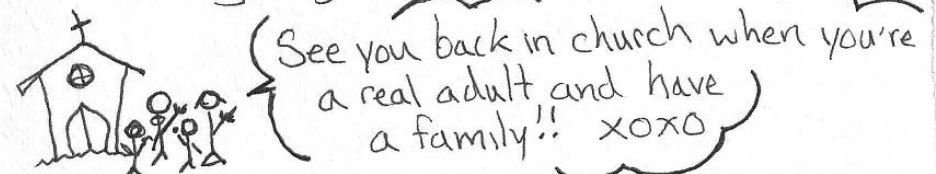 See you back in church when you're
a real adult and have
a family!! xoxo